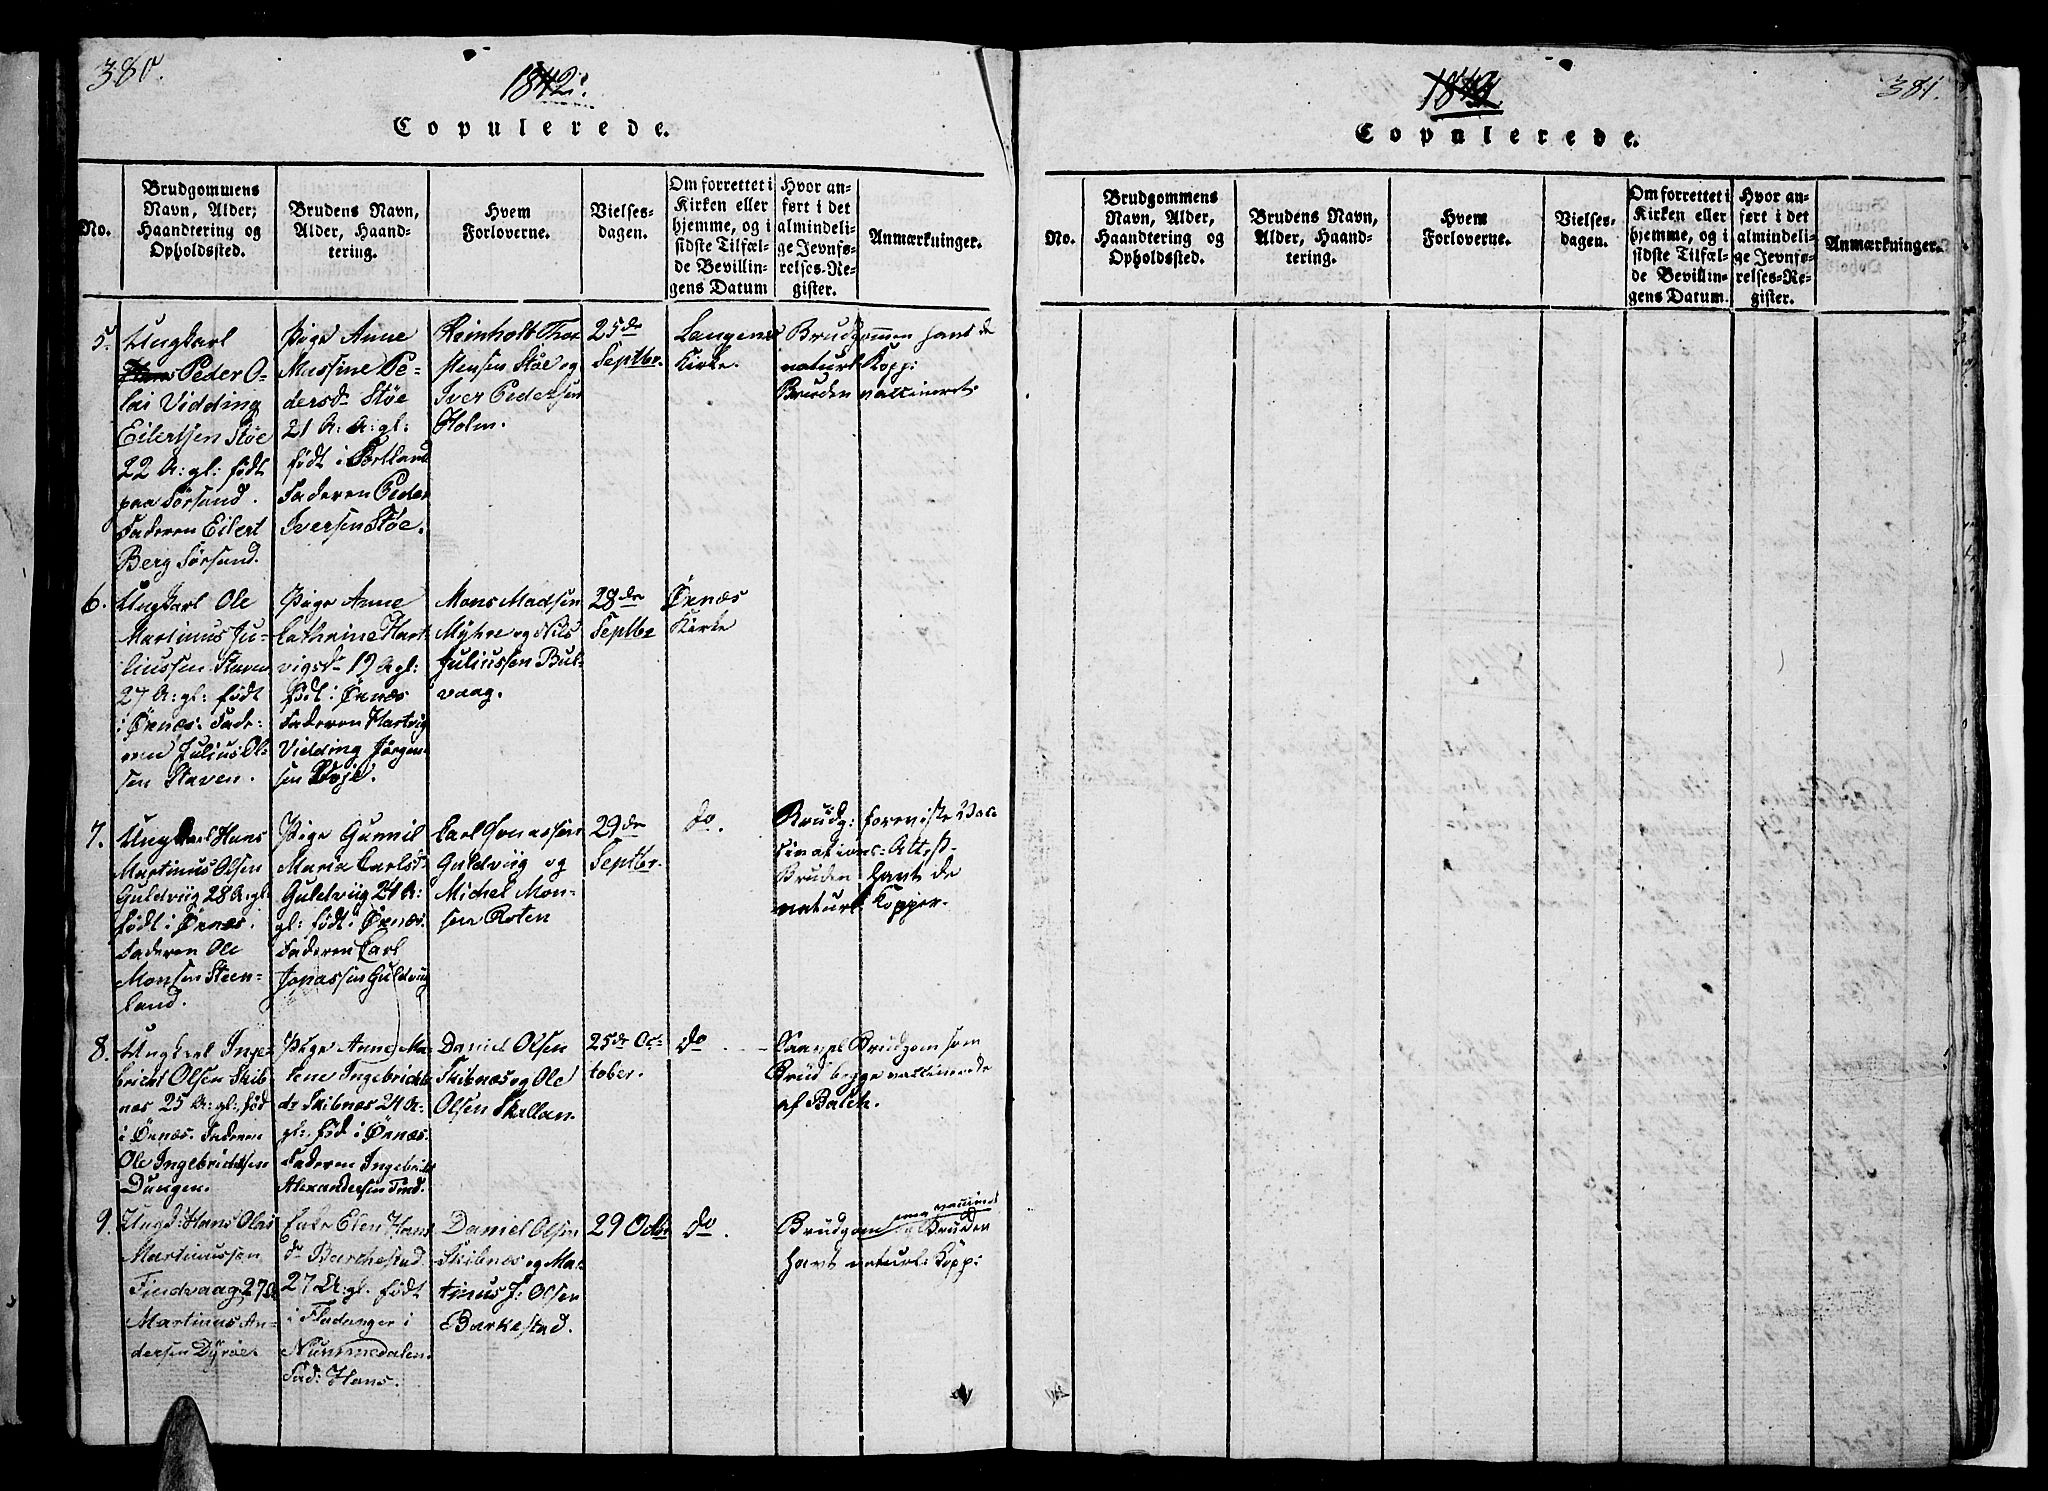 380.
1842.
Copulerede.
No.
Brudgommens
Navn, Alder,
Haandtering og
Opholdssted.
Brudens Navn,
Alder, Haand-
tering.
Hvem
Forloverne.
Vielses-
dagen.
Om forrettet i
Kirken eller
hjemme, og i
sidste Tilfæl-
de Bevillin-
gens Datum
Hvor an-
ført i det
almindeli-
ge Jevnfø-
relses-Re-
gister.
Anmærkninger.
5.
Ungkarl
Peder O-
lai Vidding
Eilertsen Støe
22 A: gl: født
paa Førsund.
Faderen Eilert
Berg Førsund.
Pige Anne
Messine Pe-
dersdr Støe
21 A: gl:
født i
Faderen Peder
Iversen Støe.
Reinholt Thor
stensen Støe og
Iver Pedersen
Holm.
25de
Septbr.
Langenes
Kirke.
Brudgommen havt de
naturl: Kopp:
Bruden vaccineret
6.
Ungkarl Ole
Martinus Ju-
liussen Staven
27 A: gl: født
i Ørnæs. Fade-
ren Julius Ol-
sen Staven.
Pige Anne
Cathrine Hart-
vigsdr 19 A gl:
født i Ørnæs
Faderen Hartvig
Vidding Jørgen-
sen
Mons Madsen
Myhre og Nils
Juliussen Bul-
vaag.
28de
Septbr
Ørnæs
Kirke
7.
Ungkarl Hans
Martinus Olsen
Guldviig 28 A: gl:
født i Ørnæs.
Faderen Ole
Monsen Steen-
land.
Pige Gunnil
Maria Carlsd
Guldviig 24 A:
gl: født i Ørnæs.
Faderen Carl
Jonassen Guldviig
Carl Jonassen
Guldviig og
Michel Mon-
sen Roten
29de
Septbr.
do.
Brudg: foreviste Vac-
cinations-Attest
Bruden havt de
naturl: Kopper.
8.
Ungkarl Inge-
bricht Olsen Skib-
næs 25 A: gl: fød
i Ørnæs. Faderen
Ole Ingebrichtsen
Dungen.
Pige Anne Ma-
lene Ingebrichts
dr Skibnæs 24 A:
gl: fød i Ørnæs.
Faderen Ingebricht
Alexandersen Tind.
Daniel Olsen
Skibnæs og Ole
Olsen Skallan.
25de Oc-
tober.
do
Saavel Brudgom som
Brud begge vaccinerede
af Balch.
9.
Ungk: Hans Olai
Martinussen
Findvaag 27 A
Martinus An-
dersen Dyrøe.
Enke Elen Hans
dr Barchestad
27 A: gl. født
i Fladanger i
Nummedalen.
Fad: Hans.
Daniel Olsen
Skibnæs og Mar-
tinus J: Olsen
Barkestad.
29 Octbr
do.
Brudgom og Bruden
havt naturl: Kopp:
381.
Copulerede.
No.
Brudgommens
Navn, Alder,
Haandtering og
Opholdssted.
Brudens Navn,
Alder, Haand-
tering.
Hvem
Forloverne.
Vielses-
dagen.
Om forrettet i
Kirken eller
hjemme, og i
sidste Tilfæl-
de Bevillin-
gens Datum.
Hvor an-
ført i det
almindeli-
ge Jevnfø-
relses-Re-
gister.
Anmærkninger.